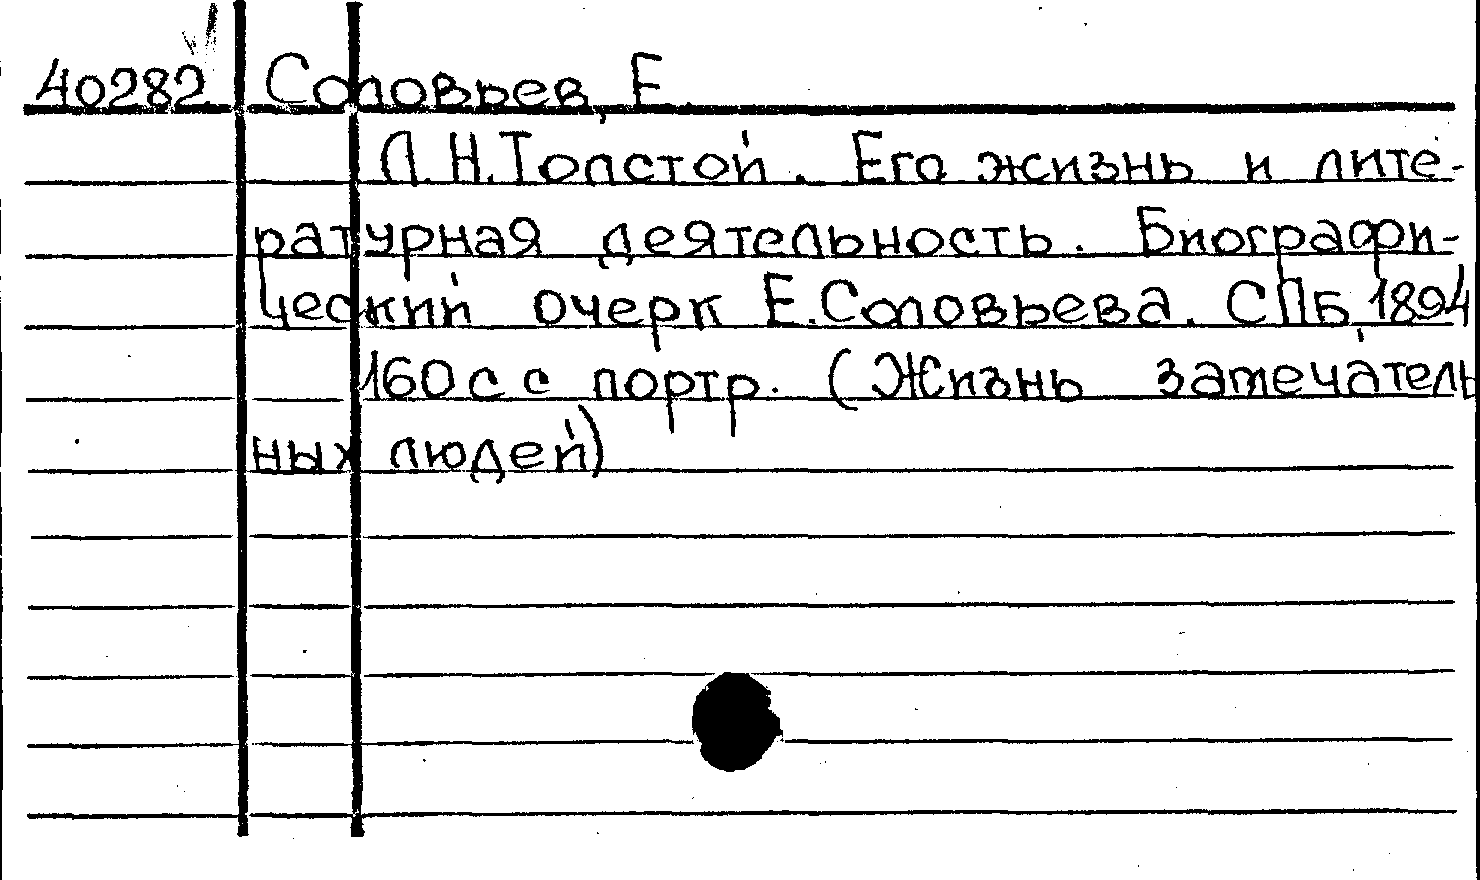 40282 Соловьев, Е.
Л.Н.Толстой. Его жизнь и лите-
ратурная деятельность. Биографи-
ческий очерк Е.Соловьева. СПБ, 1894
160 с с портр. (Жизнь замечатель
ных людей)